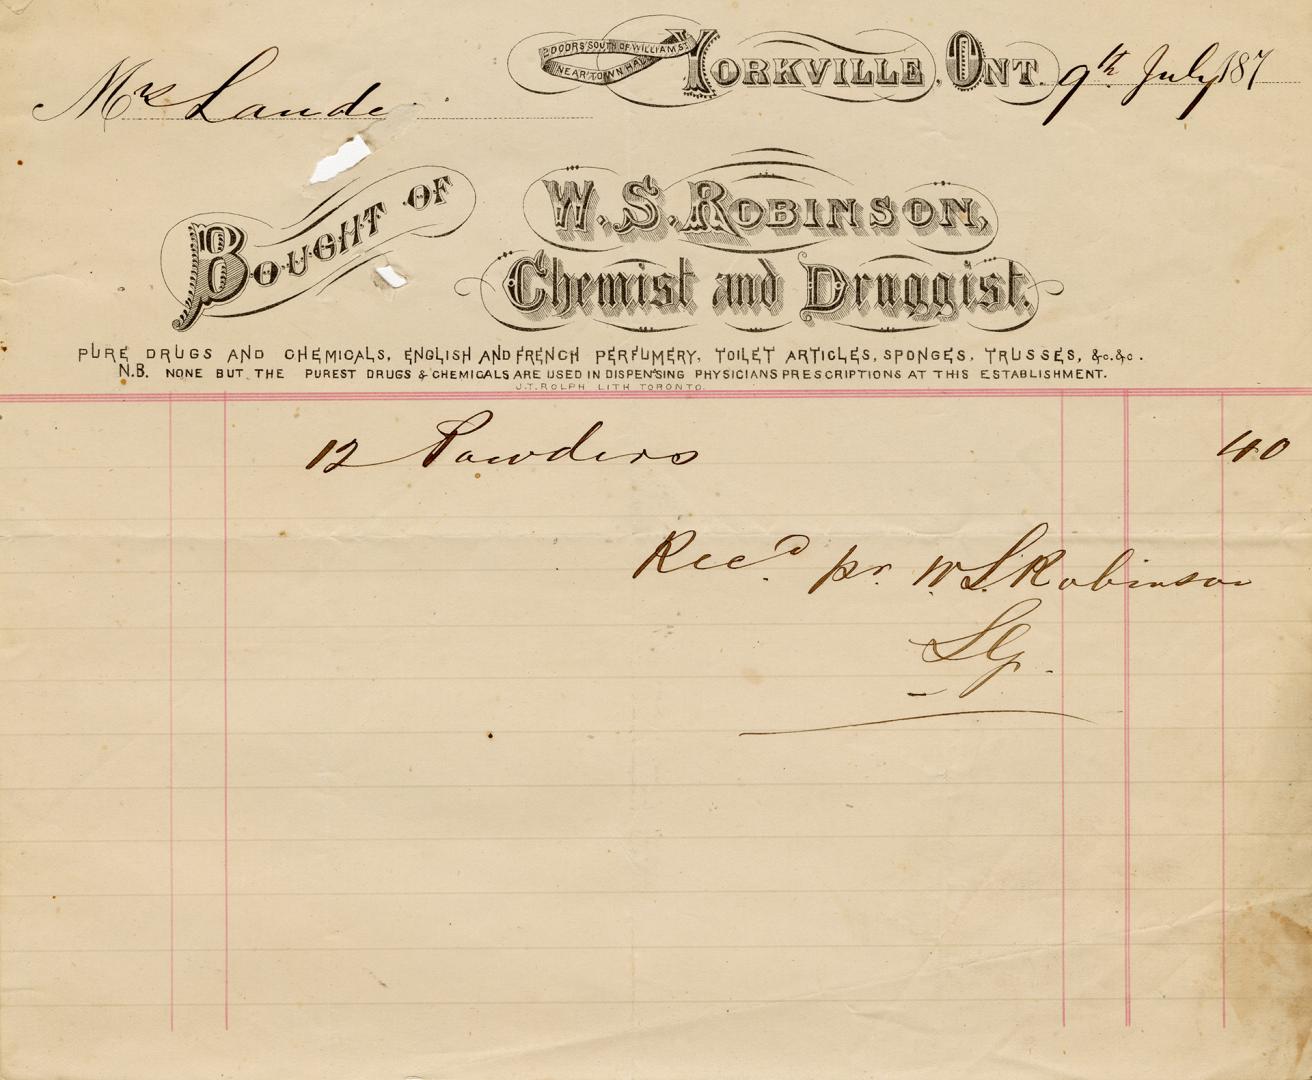 2 DOORS SOUTH OF WILLIAM ST.
NEAR TOWN HALL
YORKVILLE, ONT. 9th July 187
Mrs Lande
BOUGHT OF
W. S. ROBINSON,
Chemist and Druggist.
PURE DRUGS AND CHEMICALS, ENGLISH AND FRENCH PERFUMERY, TOILET ARTICLES, SPONGES, TRUSSES, &c. &c.
N.B. NONE BUT THE PUREST DRUGS & CHEMICALS ARE USED IN DISPENSING PHYSICIANS PRESCRIPTIONS AT THIS ESTABLISHMENT.
J.T. ROLPH LITH TORONTO.
12 Powders 40
Recd pr. W. S. Robinson
SG.